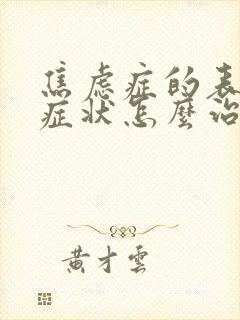 焦虑症的表
症状怎麼治
黄才雲